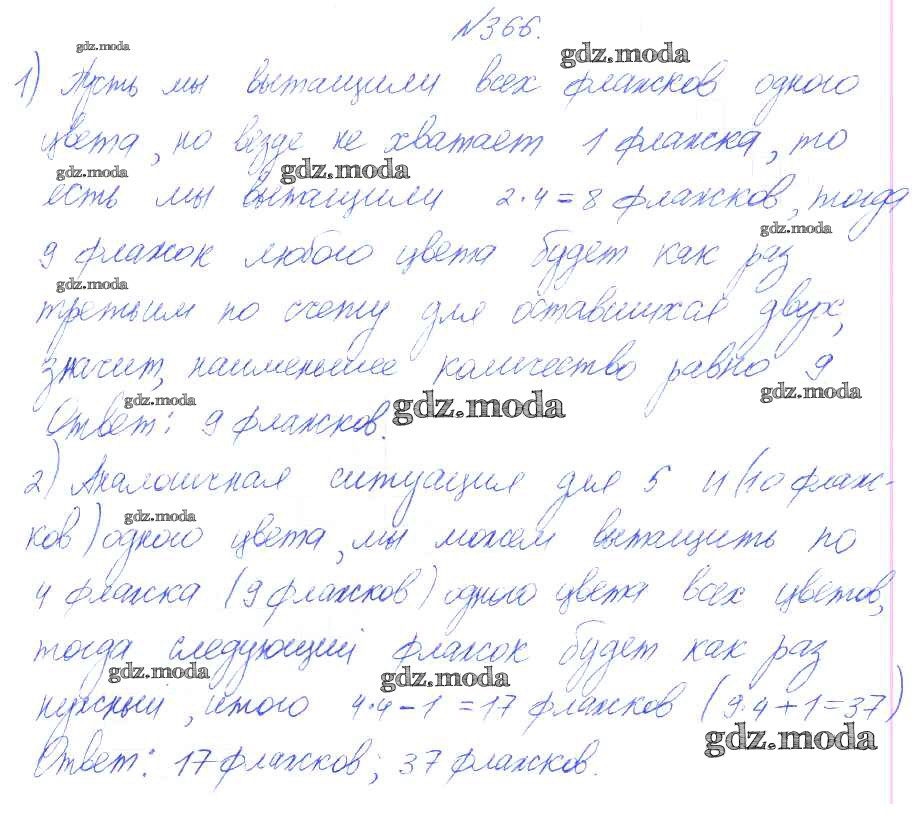 №366.
1) Пусть мы вытащили всех флажков одного
цвета, но везде не хватает 1 флажка, то
есть мы вытащили 2·4=8 флажков, тогда
9 флажок любого цвета будет как раз
третьим по счету для оставшихся двух,
значит, наименьшее количество равно 9
Ответ: 9 флажков.
2) Аналогичная ситуация для 5 и (10 флаж-
ков) одного цвета, мы можем вытащить по
4 флажка (9 флажков) одного цвета всех цветов,
тогда следующий флажок будет как раз
нужный, итого 4·4-1=17 флажков (9·4+1=37)
Ответ: 17 флажков; 37 флажков.
gdz.moda
gdz.moda
gdz.moda
gdz.moda
gdz.moda
gdz.moda
gdz.moda
gdz.moda
gdz.moda
gdz.moda
gdz.moda
gdz.moda
gdz.moda